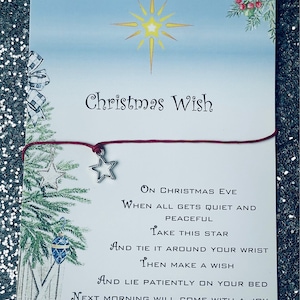 Christmas Wish
On Christmas Eve
When all gets quiet and
peaceful
Take this star
And tie it around your wrist
Then make a wish
And lie patiently on your bed
Next morning will come with a